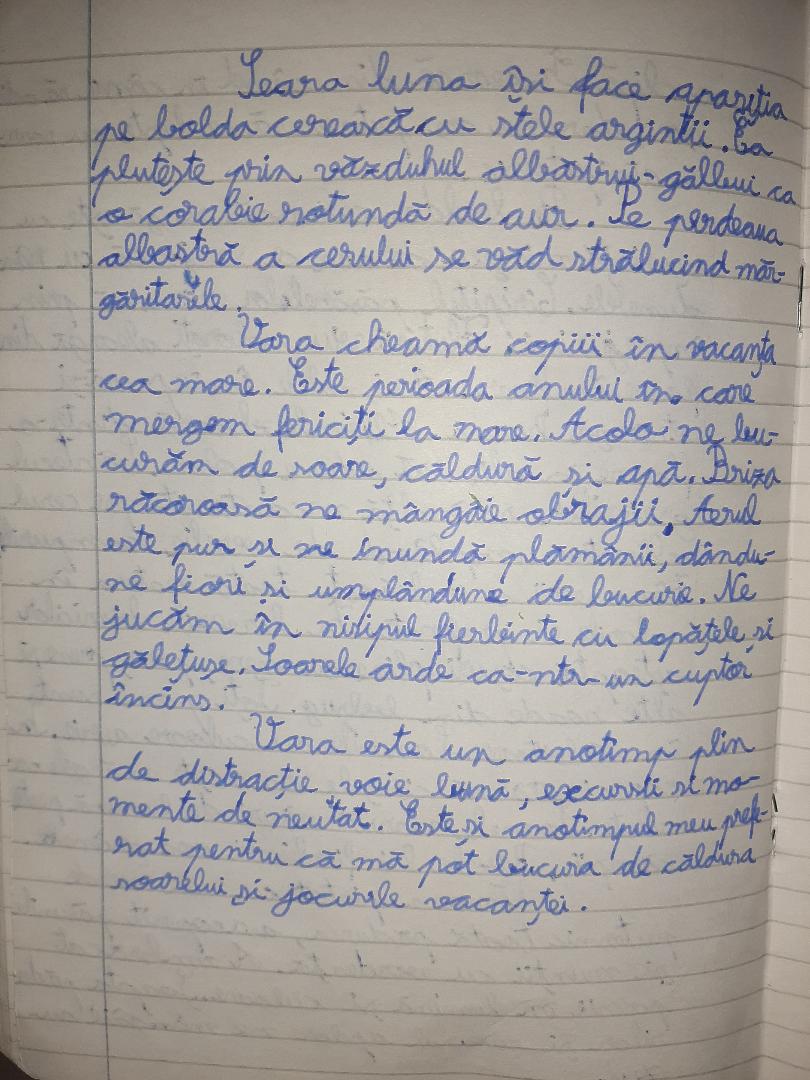 Seara luna își face apariția
pe bolda cerească cu stele argintii. Ea
plutește prin văzduhul albăstrui-gălbui ca
o corabie rotundă de aur. Pe perdeaua
albastră a cerului se văd strălucind măr-
găritarele.
Vara cheamă copiii în vacanța
cea mare. Este perioada anului în care
mergem fericiți la mare. Acolo ne bu-
curăm de soare, căldură și apă. Briza
răcoroasă ne mângâie obrajii. Aerul
este pur și ne inundă plămânii, dându-
ne fiori și umplândune de bucurie. Ne
jucăm în nisipul fierbinte cu lopățele și
gălețușe. Soarele arde ca-ntr-un cuptor
încins.
Vara este un anotimp plin
de distracție voie bună, excursii și mo-
mente de neuitat. Este și anotimpul meu prefe-
rat pentru că mă pot bucura de căldura
soarelui și jocurile vacanței.